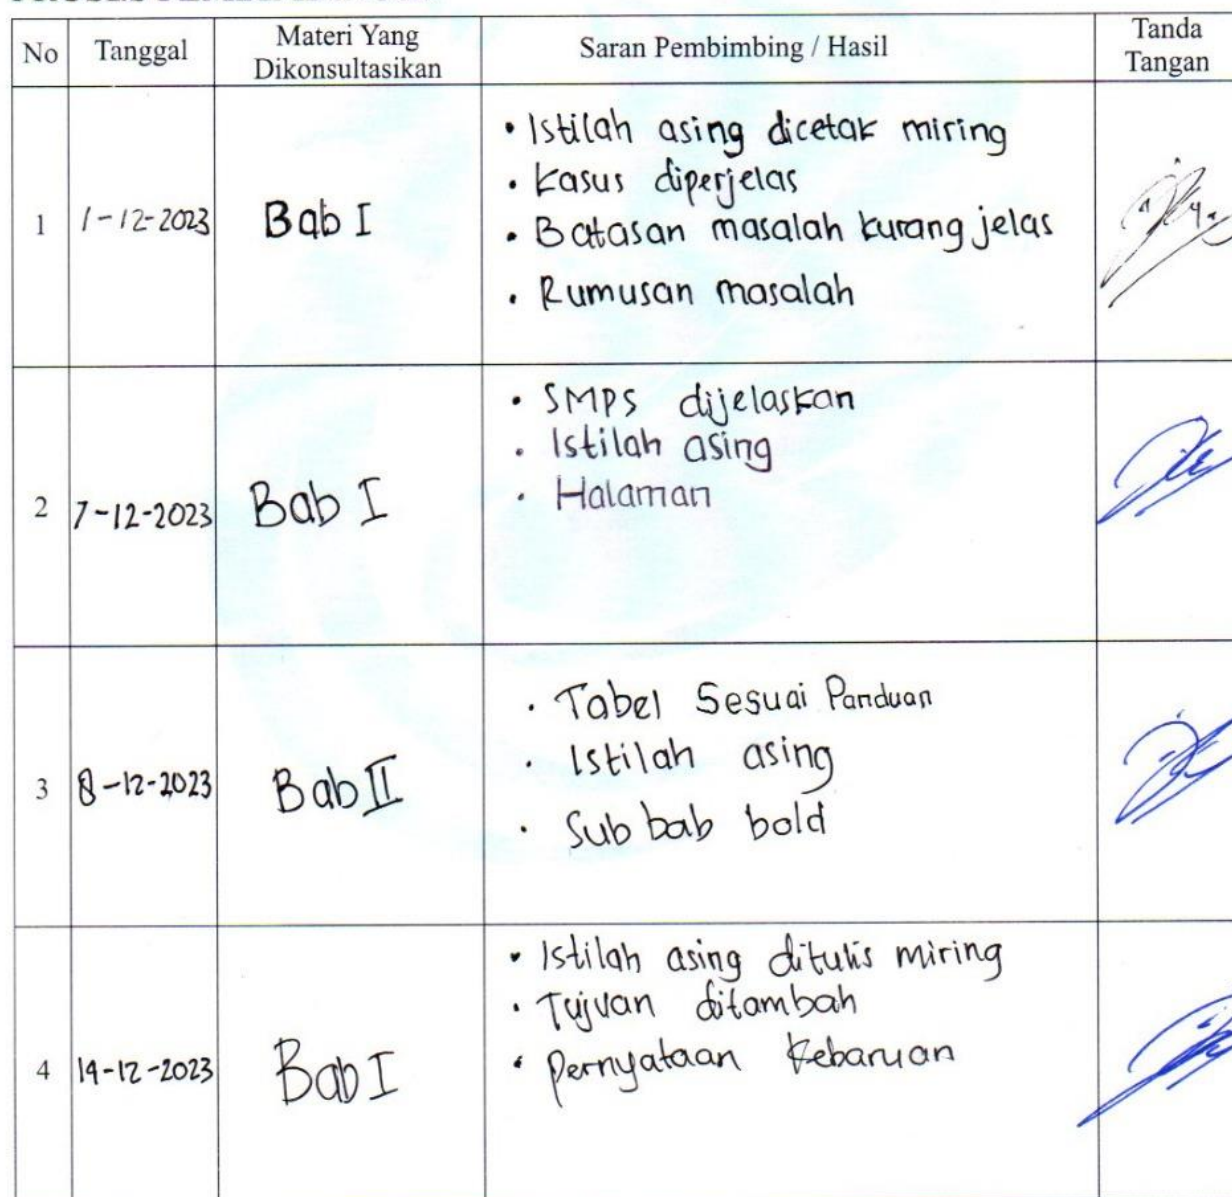 No
Tanggal
Materi Yang
Dikonsultasikan
Saran Pembimbing / Hasil
Tanda
Tangan
1
1-12-2023
Bab I
• Istilah asing dicetak miring
• Kasus diperjelas
• Batasan masalah kurang jelas
• Rumusan masalah
2
7-12-2023
Bab I
• SMPS dijelaskan
• Istilah asing
• Halaman
3
8-12-2023
Bab II
• Tabel Sesuai Panduan
• Istilah asing
• Sub bab bold
4
14-12-2023
Bab I
• Istilah asing ditulis miring
• Tujuan ditambah
• Pernyataan Kebaruan